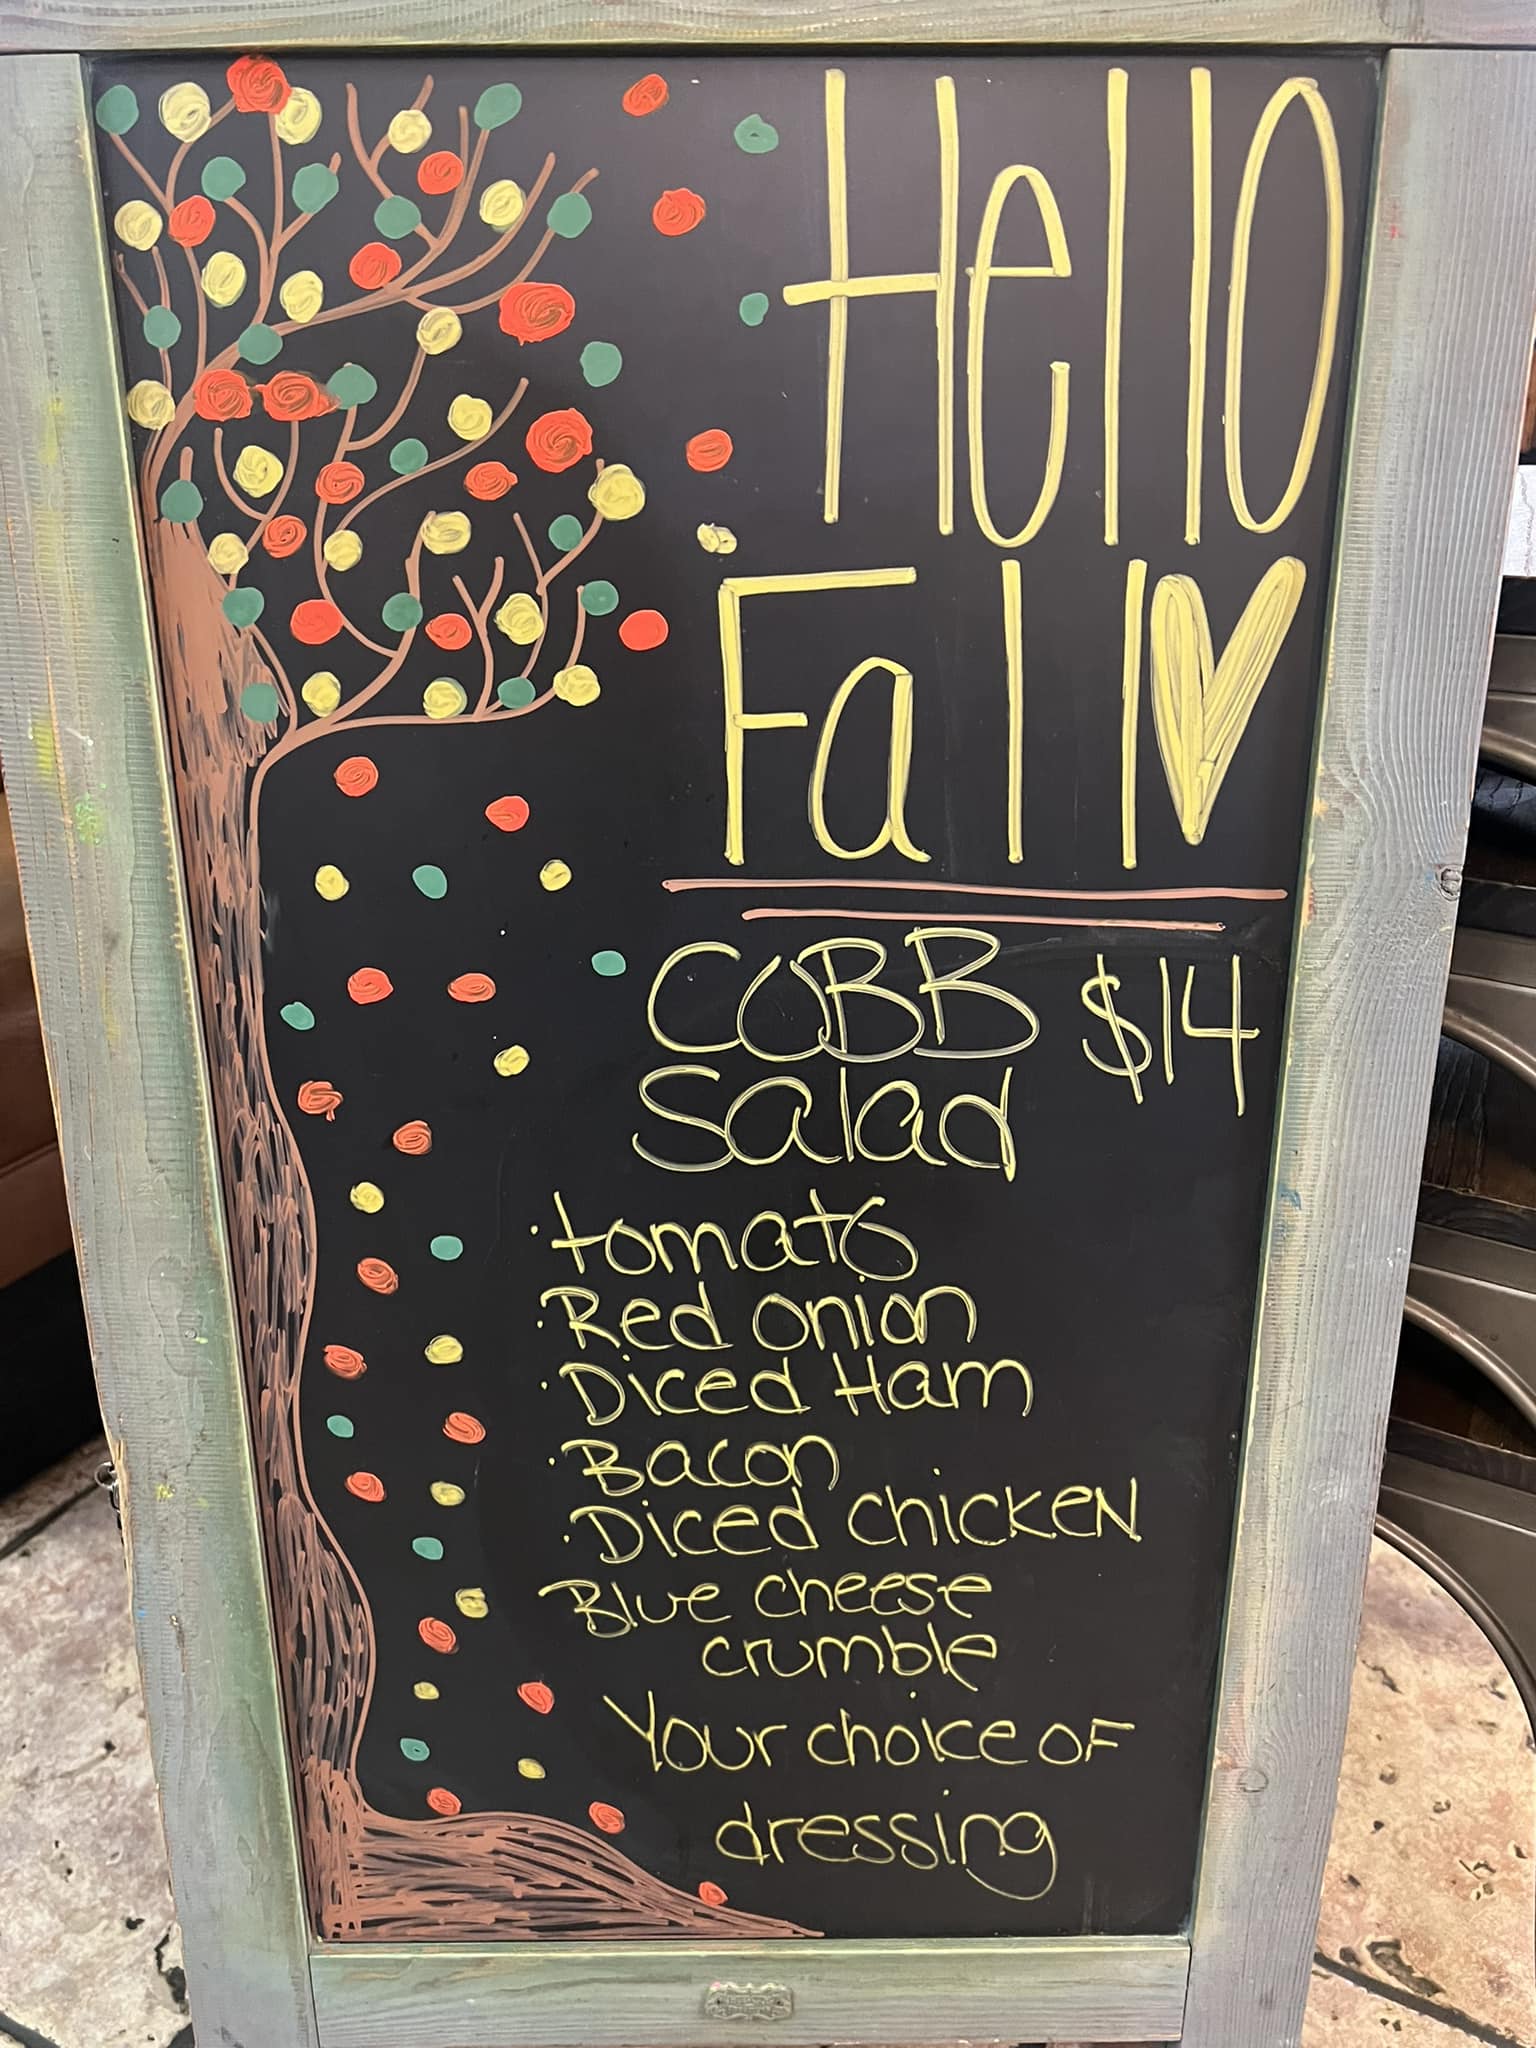 Hello
Fall
COBB $14
Salad
·tomato
·Red onion
·Diced Ham
·Bacon
·Diced chicken
Blue cheese
crumble
Your choice of
dressing